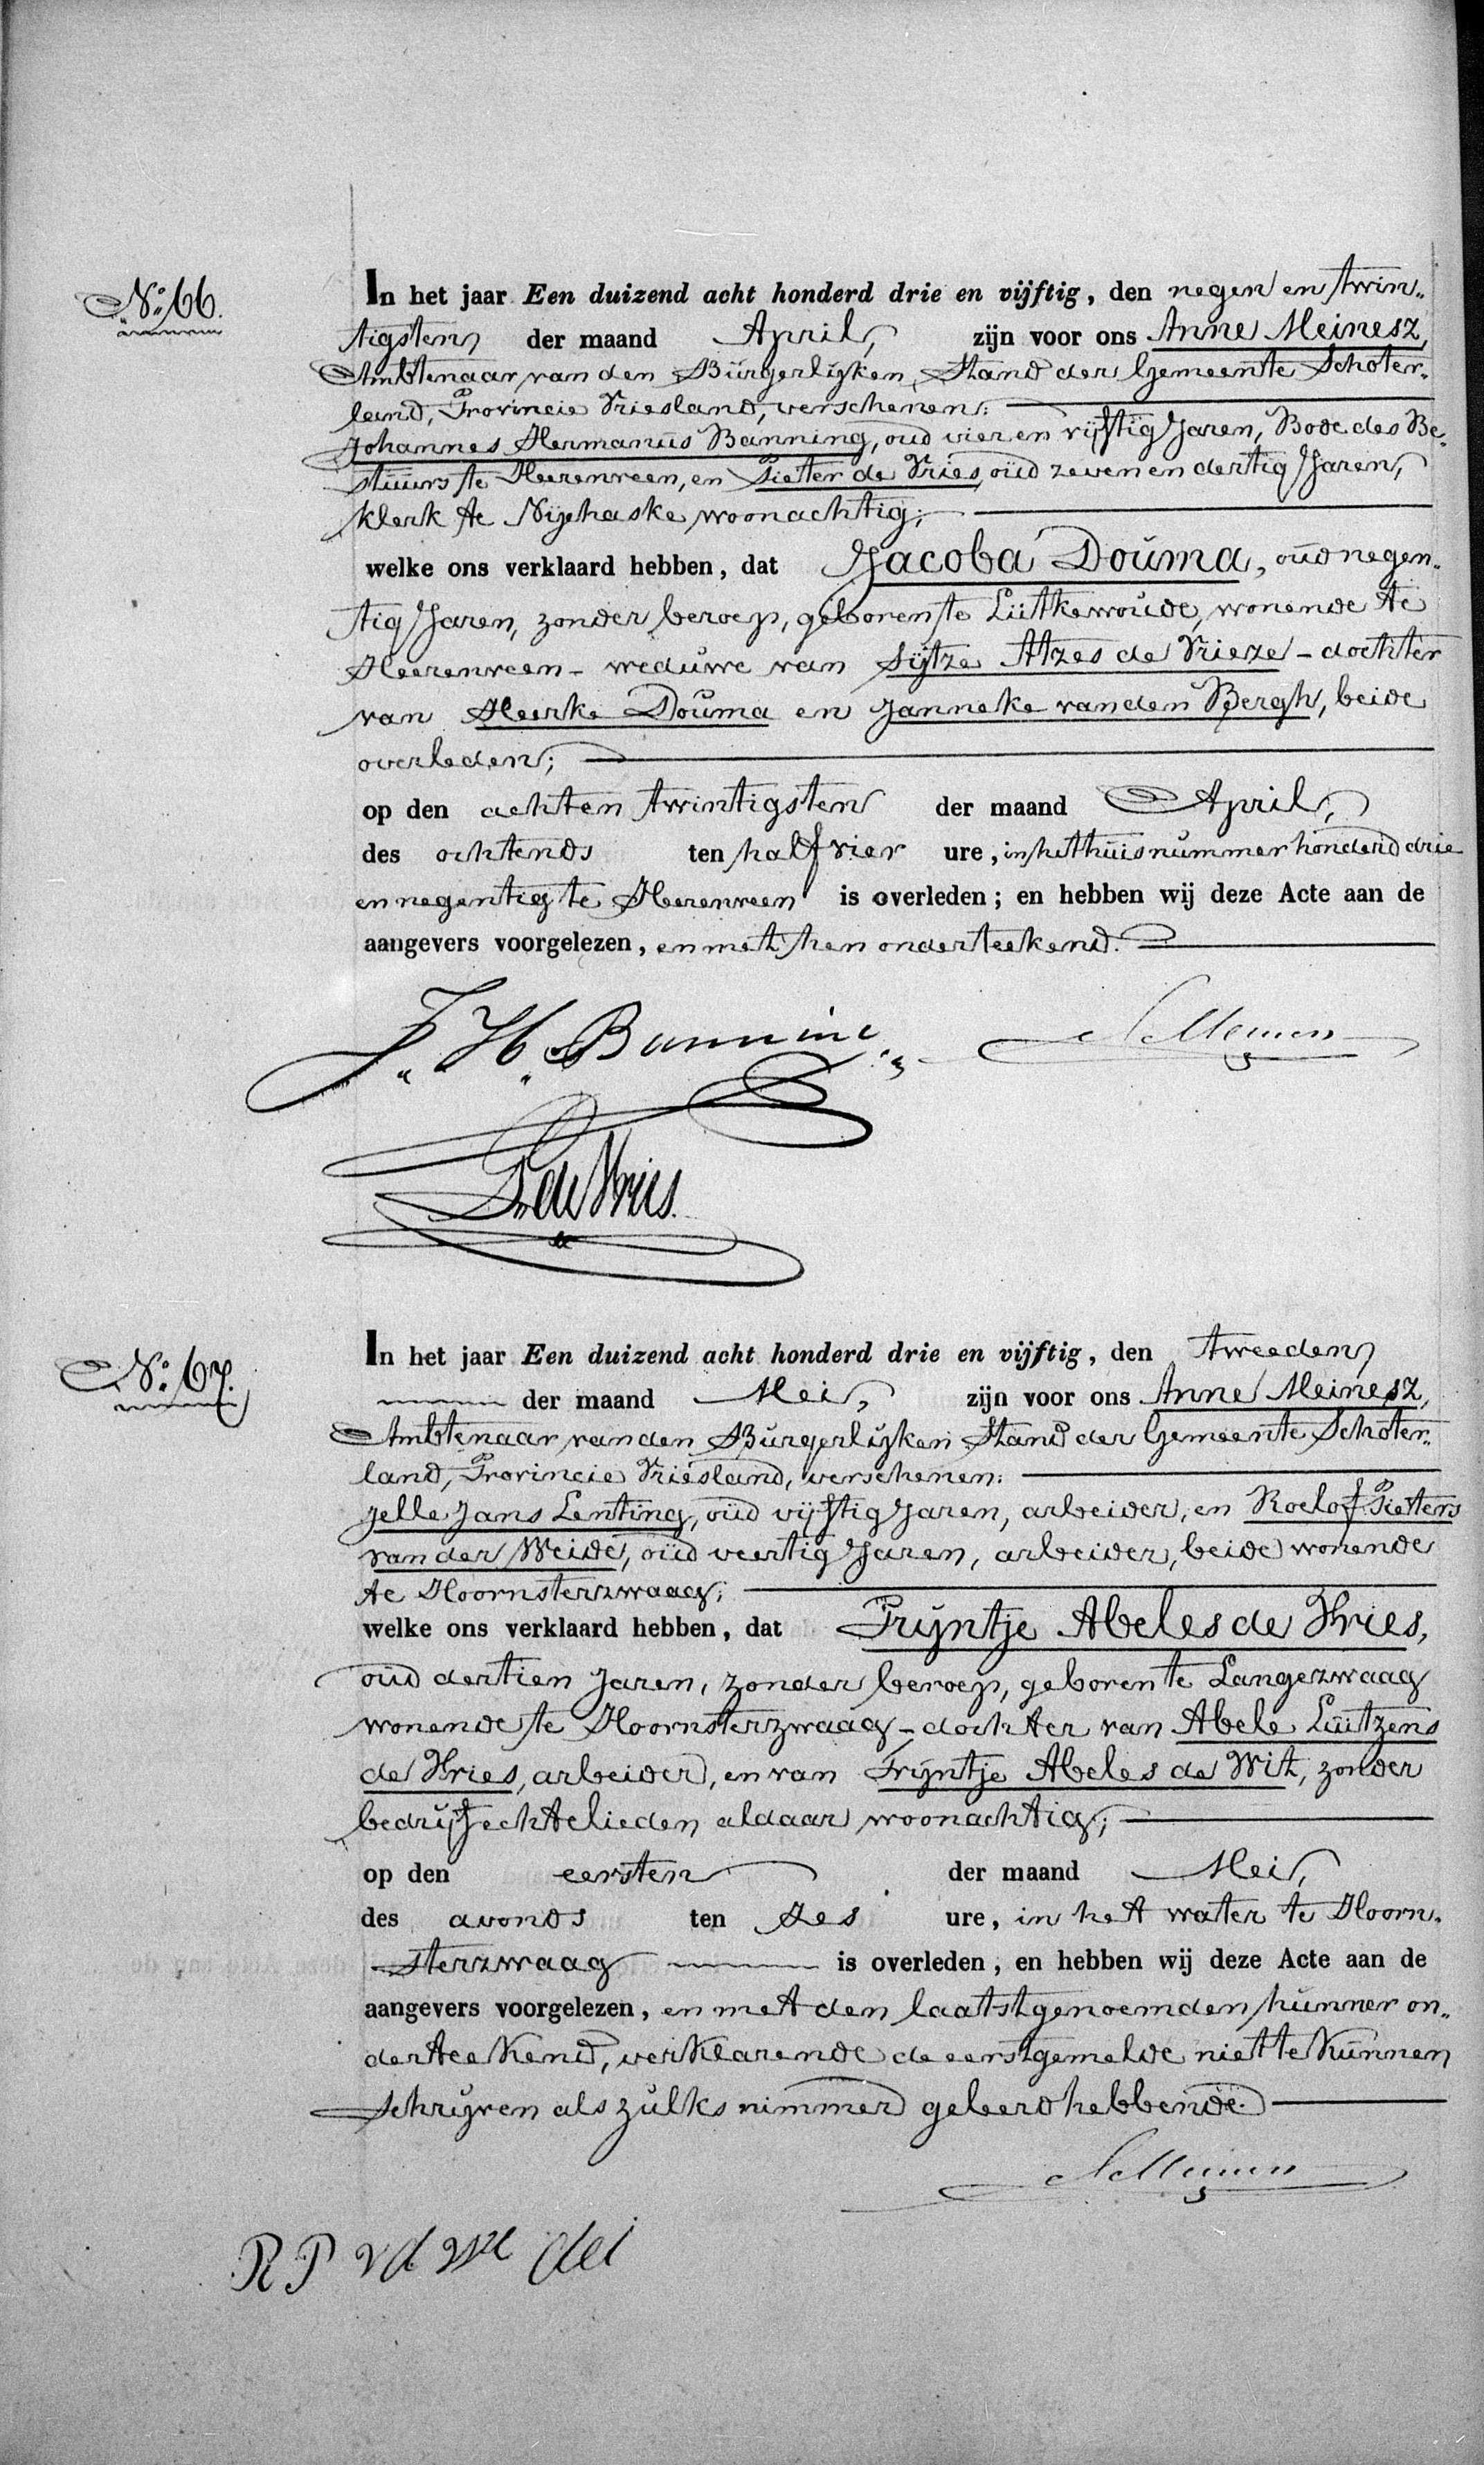 No. 66.
In het jaar Een duizend acht honderd drie en vijftig, den negen en twin„
tigsten der maand April, zijn voor ons Anne Meinesz,
Ambtenaar van den Burgerlijken Stand der Gemeente Schoter„
land, Provincie Vriesland, verschenen:
Johannes Hermanus Banning, oud vier en vijftig Jaren, Bode des Be„
stuurs te Heerenveen, en Pieter de Vries, oud zeven en dertig Jaren,
klerk te Nijehaske woonachtig;
welke ons verklaard hebben, dat Jacoba Douma, oud negen„
tig Jaren, zonder beroep, geboren te Lutkewoude, wonende te
Heerenveen - weduwe van Sijtze Atzes de Vrieze - dochter
van Heerke Douma en Janneke van den Bergh, beide
overleden;
op den achten twintigsten der maand April,
des ochtends ten half vier ure, in het huis nummer honderd drie
en negentig te Heerenveen is overleden; en hebben wij deze Acte aan de
aangevers voorgelezen, en met hen onderteekend.
J. H. Banning
AMeinesz
P. de Vries.
No. 67.
In het jaar Een duizend acht honderd drie en vijftig, den tweeden
der maand Mei, zijn voor ons Anne Meinesz,
Ambtenaar van den Burgerlijken Stand der Gemeente Schoter„
land, Provincie Vriesland, verschenen:
Jelle Jans Lenting, oud vijftig Jaren, arbeider, en Roelof Pieters
van der Weide, oud veertig Jaren, arbeider, beide wonende
te Hoornsterzwaag;
welke ons verklaard hebben, dat Trijntje Abeles de Vries,
oud dertien Jaren, zonder beroep, geboren te Langezwaag
wonende te Hoornsterzwaag - dochter van Abele Luitzens
de Vries, arbeider, en van Trijntje Abeles de Wit, zonder
bedrijf echtelieden aldaar woonachtig;
op den eersten der maand Mei,
des avonds ten zes ure, in het water te Hoorn„
sterzwaag is overleden, en hebben wij deze Acte aan de
aangevers voorgelezen, en met den laatstgenoemden hunner on„
derteekend, verklarende de eerstgemelde niet te kunnen
schrijven als zulks nimmer geleerd hebbende.
AMeinesz
R P v d we dei